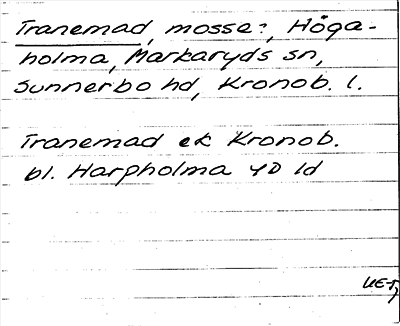 Tranemad, mosse?, Höga-
holma, Markaryds sn,
Sunnerbo hd, Kronob. l.
Tranemad ek Kronob.
bl. Harpholma 4D ld